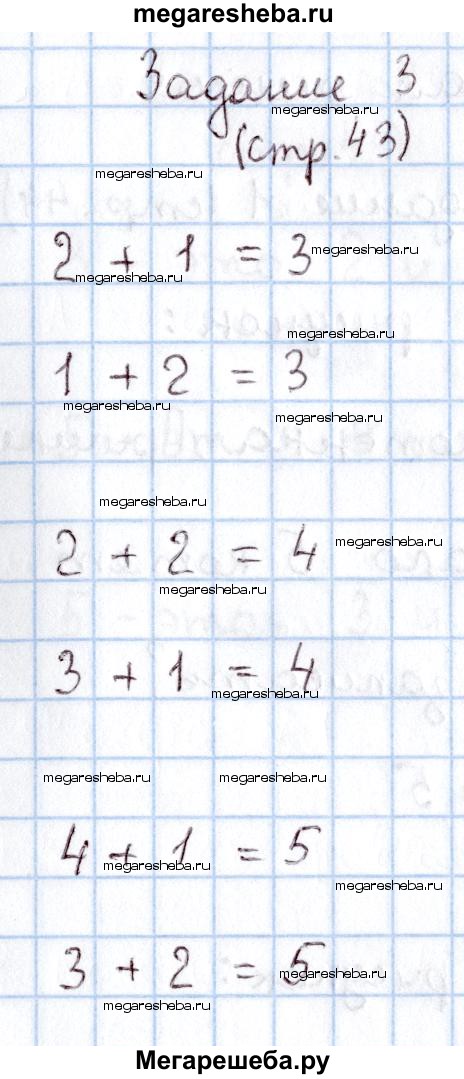 megaresheba.ru
Задание 3
megaresheba.ru
(стр. 43)
megaresheba.ru
2 + 1 = 3
megaresheba.ru
megaresheba.ru
megaresheba.ru
1 + 2 = 3
megaresheba.ru
megaresheba.ru
megaresheba.ru
2 + 2 = 4
megaresheba.ru
megaresheba.ru
3 + 1 = 4
megaresheba.ru
megaresheba.ru megaresheba.ru
4 + 1 = 5
megaresheba.ru
megaresheba.ru
3 + 2 = 5
megaresheba.ru
megaresheba.ru
Мегарешеба.ру